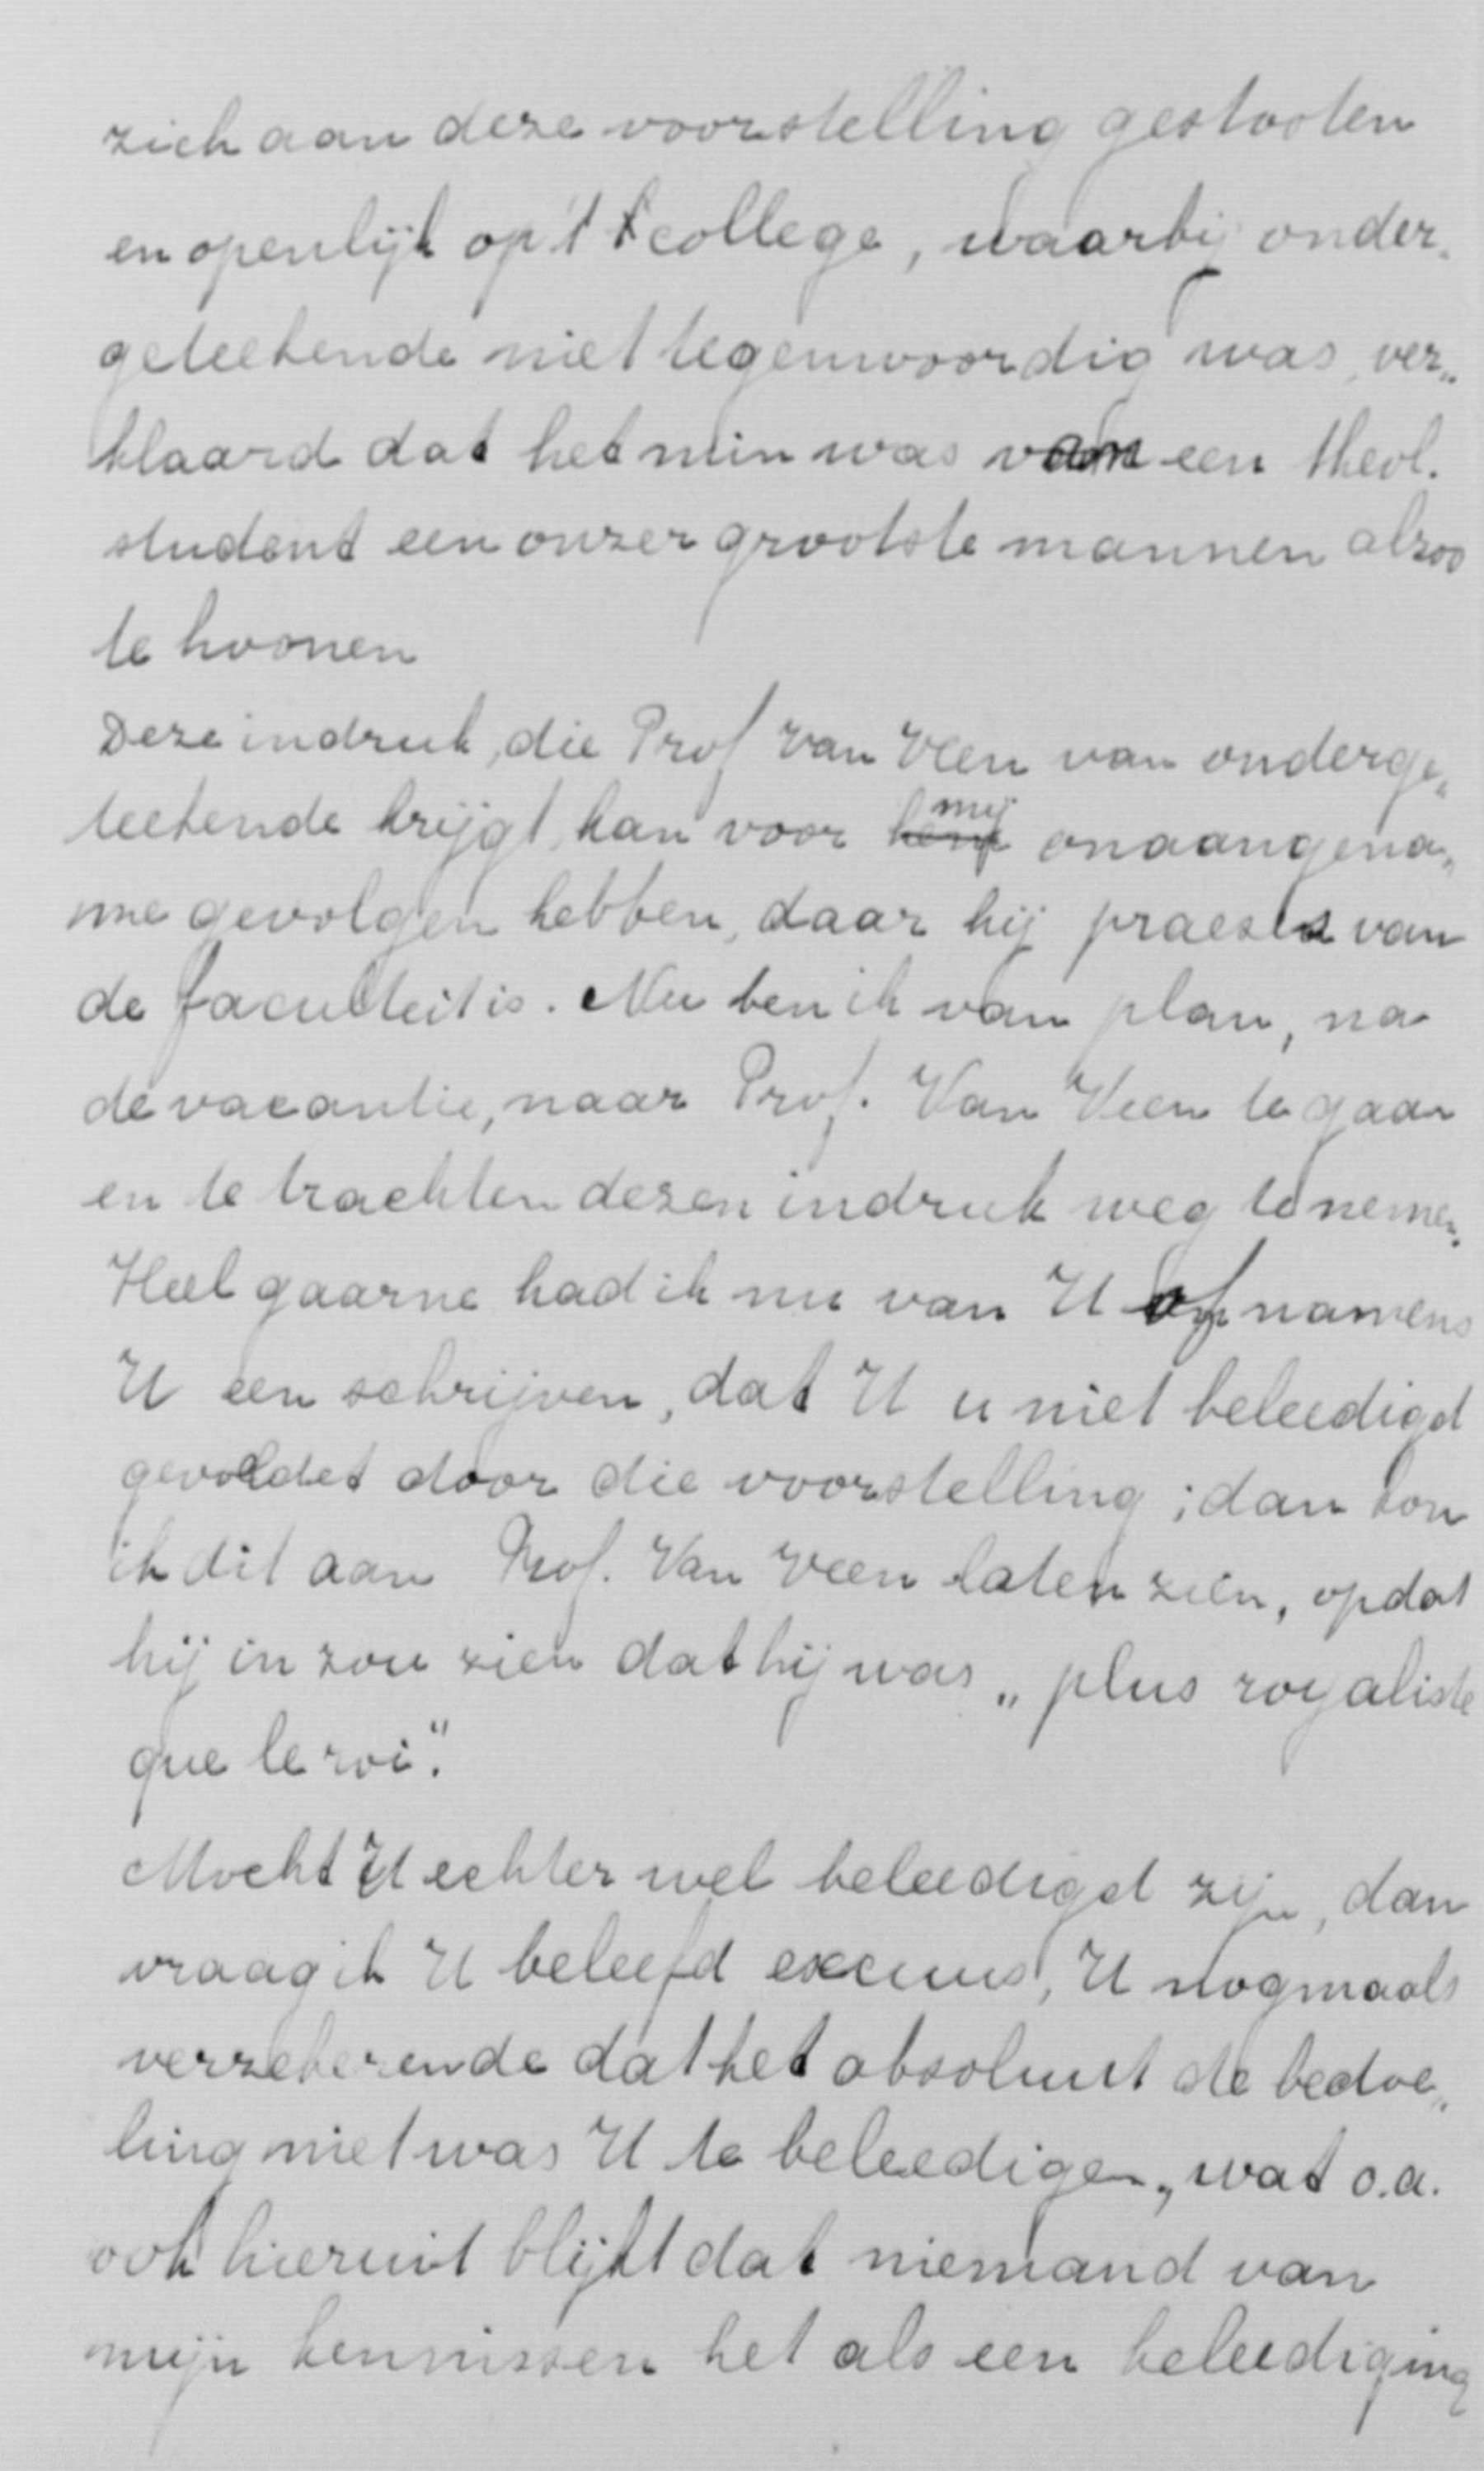 zich aan deze voorstelling gestooten
en openlijk op 't college, waarbij onder„
geteekende niet tegenwoordig was, ver„
klaard dat het min was van een theol.
student een onzer grootste mannen alzoo
te hoonen
Deze indruk, die Prof Van Veen van onderge„
teekende krijgt, kan voor mij onaangena„
me gevolgen hebben, daar hij praeses van
de faculteit is. Nu ben ik van plan, na
de vacantie, naar Prof. Van Veen te gaan
en te trachten dezen indruk weg te nemen.
Heel gaarne had ik nu van U of namens
U een schrijven, dat U u niet beleedigd
gevoeldet door die voorstelling; dan zou
ik dit aan Prof. Van Veen laten zien, opdat
hij in zou zien dat hij was „plus royaliste
que le roi".
Mocht U echter wel beleedigd zijn, dan
vraag ik U beleefd excuus, U nogmaals
verzekerende dat het absoluut de bedoe„
ling niet was U te beleedigen, wat o.a.
ook hieruit blijkt dat niemand van
mijn kennissen het als een beleediging